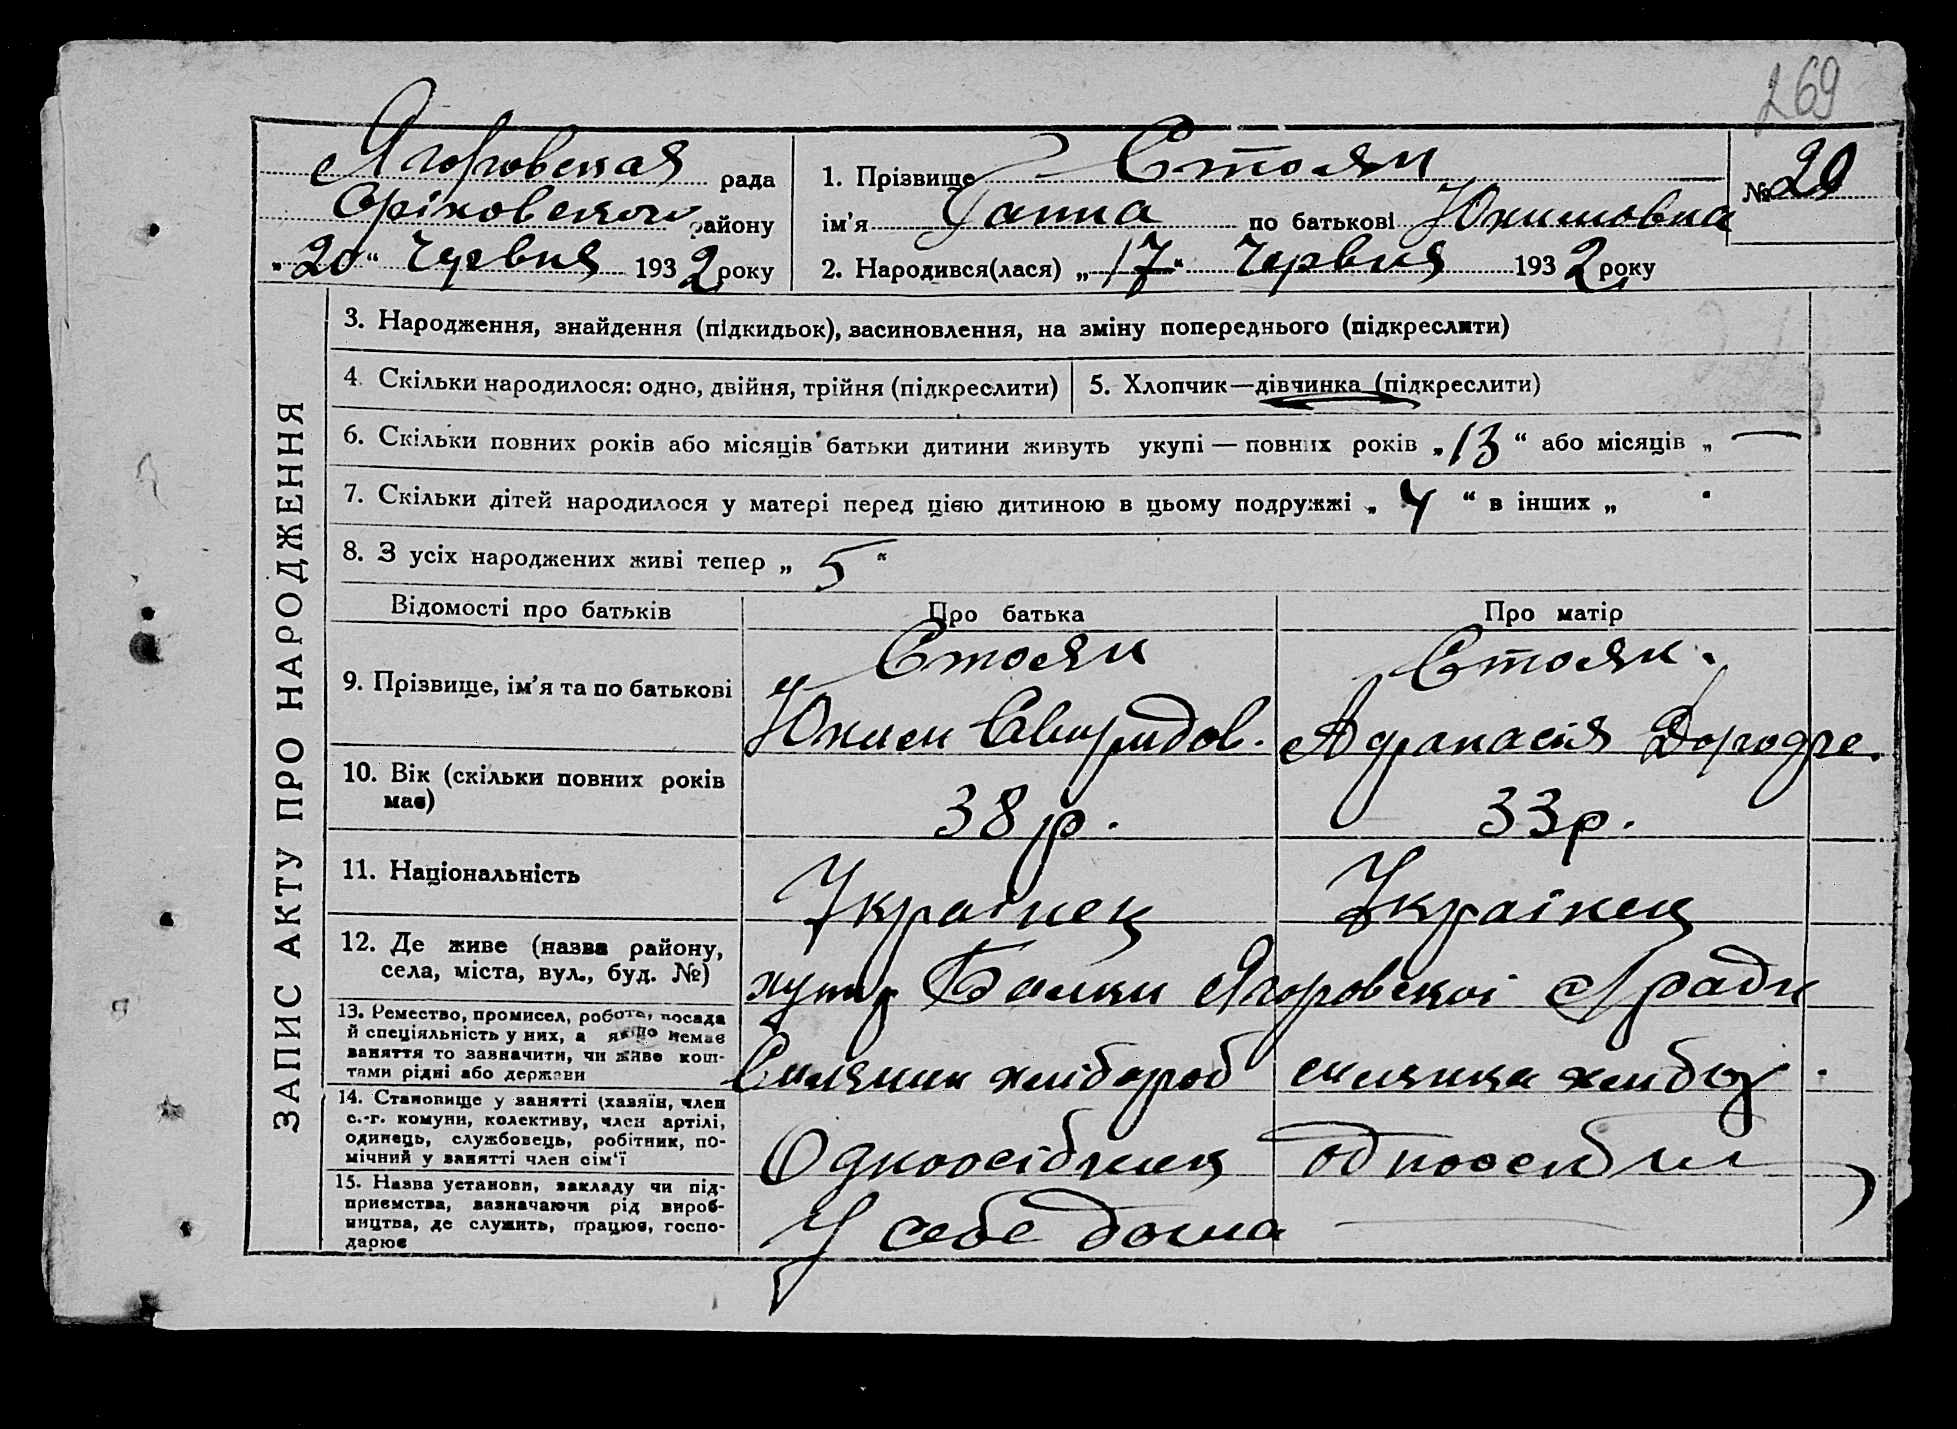 269
Ягоровская рада
Оріховського району
„20“ Червня 1932 року
1. Прізвище Стоян
ім’я Ганна по батькові Юхимовна
2. Народився(лася) „17“ Червня 1932 року
№ 20
ЗАПИС АКТУ ПРО НАРОДЖЕННЯ
3. Народження, знайдення (підкидьок), засиновлення, на зміну попереднього (підкреслити)
4. Скільки народилося: одно, двійня, трійня (підкреслити)
5. Хлопчик—дівчинка (підкреслити)
6. Скільки повних років або місяців батьки дитини живуть укупі — повних років „13“ або місяців „ —
7. Скільки дітей народилося у матері перед цією дитиною в цьому подружжі „4“ в інших „
8. З усіх народжених живі тепер „5“
Відомості про батьків
Про батька
Про матір
9. Прізвище, ім’я та по батькові
Стоян
Юхим Свиридов.
Стоян.
Афанасія
10. Вік (скільки повних років
має)
38 р.
33 р.
11. Національність
Українец
Українец
12. Де живе (назва району,
села, міста, вул., буд. №)
хутір Балки Ягоровскоі с/ради
13. Ремество, промисел, робота, посада
й спеціяльність у них, а якщо немає
заняття то зазначити, чи живе кош-
тами рідні або держави
Силянин хлібороб
силянка хлибор
14. Становище у занятті (хазяїн, член
с.-г. комуни, колективу, член артілі,
одинець, службовець, робітник, по-
мічний у занятті член сім’ї
Одноосібник
одноосибни
15. Назва установи, закладу чи під-
приємства, зазначаючи рід вироб-
ництва, де служить, працює, госпо-
дарює
У себе дома